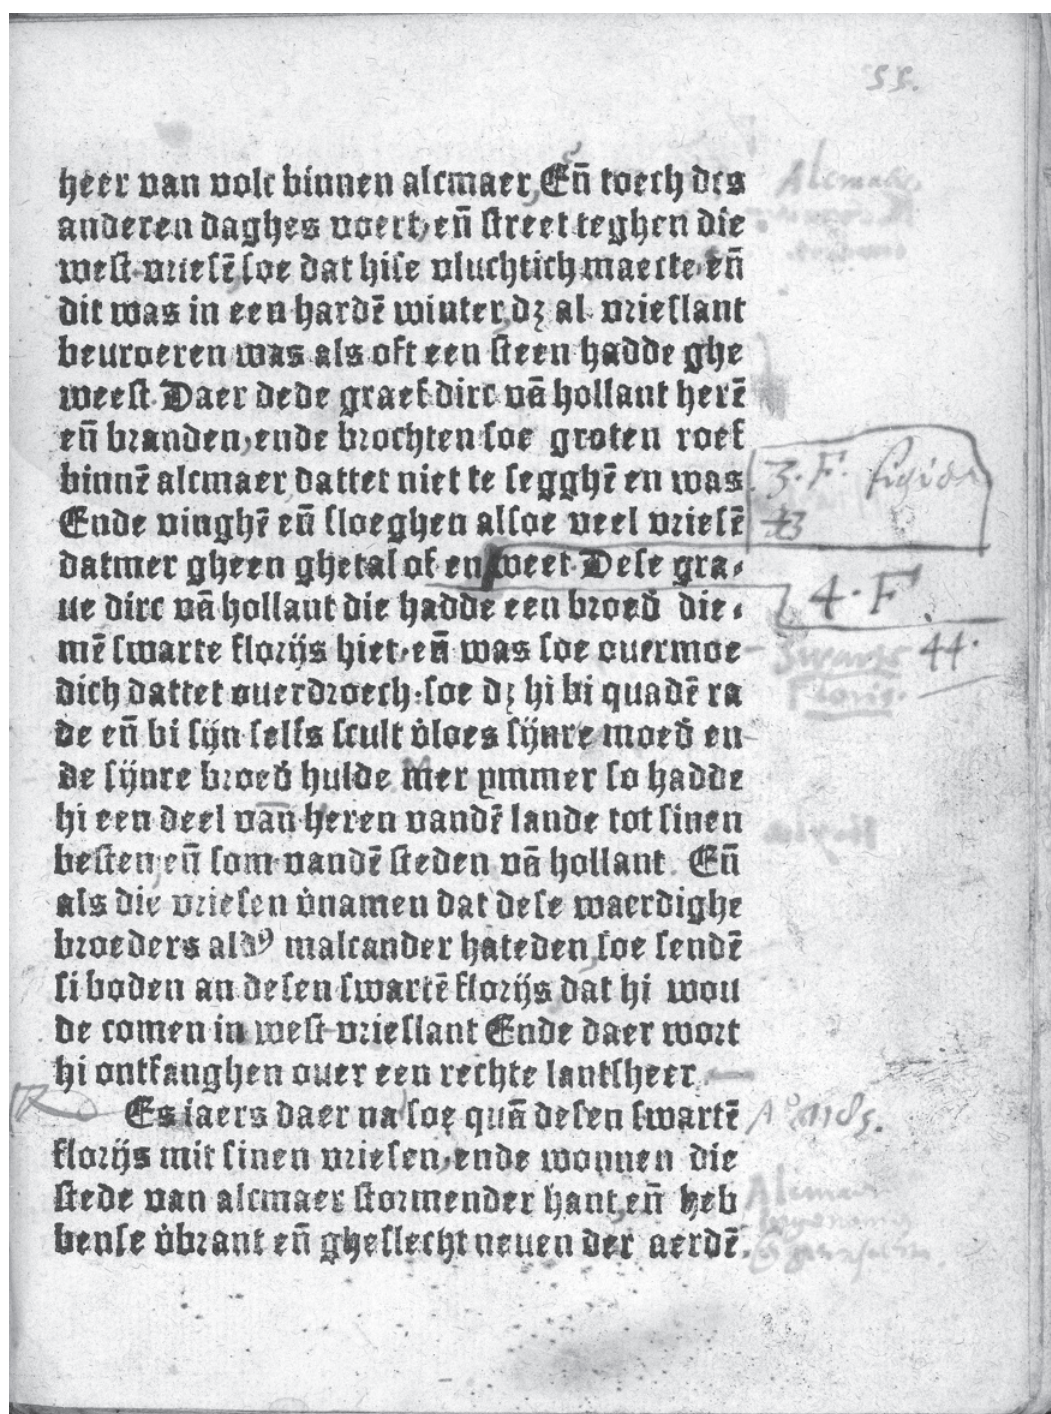 55.
heer van volc binnen alcmaer, En̄ toech des
anderen daghes voert, en̄ street teghen die
west-vriesē, soe dat hise vluchtich maecte, en̄
dit was in een hardē winter, dꝫ al vrieslant
beuroeren was als oft een steen hadde ghe
weest Daer dede graef dirc vā hollant herē
en̄ branden, ende brochten soe groten roef
binnē alcmaer dattet niet te segghē en was
Ende vinghē en̄ sloeghen alsoe veel vriesē
datmer gheen ghetal of en weet Dese gra⸗
ue dirc vā hollant die hadde een broed̄ die⸗
mē swarte florijs hiet, en̄ was soe ouermoe
dich dattet ouerdroech: soe dꝫ hi bi quadē ra
de en̄ bi sijn selfs scult v̓loes sijnre moed̄ en
de sijnre broed̄ hulde mer ymmer so hadde
hi een deel van heren vandē lande tot sinen
besten, en̄ som vandē steden vā hollant. En̄
als die vriesen v̓namen dat dese waerdighe
broeders aldꝰ malcander hateden, soe sendē
si boden an desen swartē florijs dat hi wou
de comen in west-vrieslant Ende daer wort
hi ontfanghen ouer een rechte lantsheer
Es iaers daer na soe quā desen swartē
florijs mit sinen vriesen, ende wonnen die
stede van alcmaer stormender hant, en̄ heb
bense v̓brant en̄ gheslecht neuen der aerdē.
3. F.
4. F
Swarte 44.
Floris.